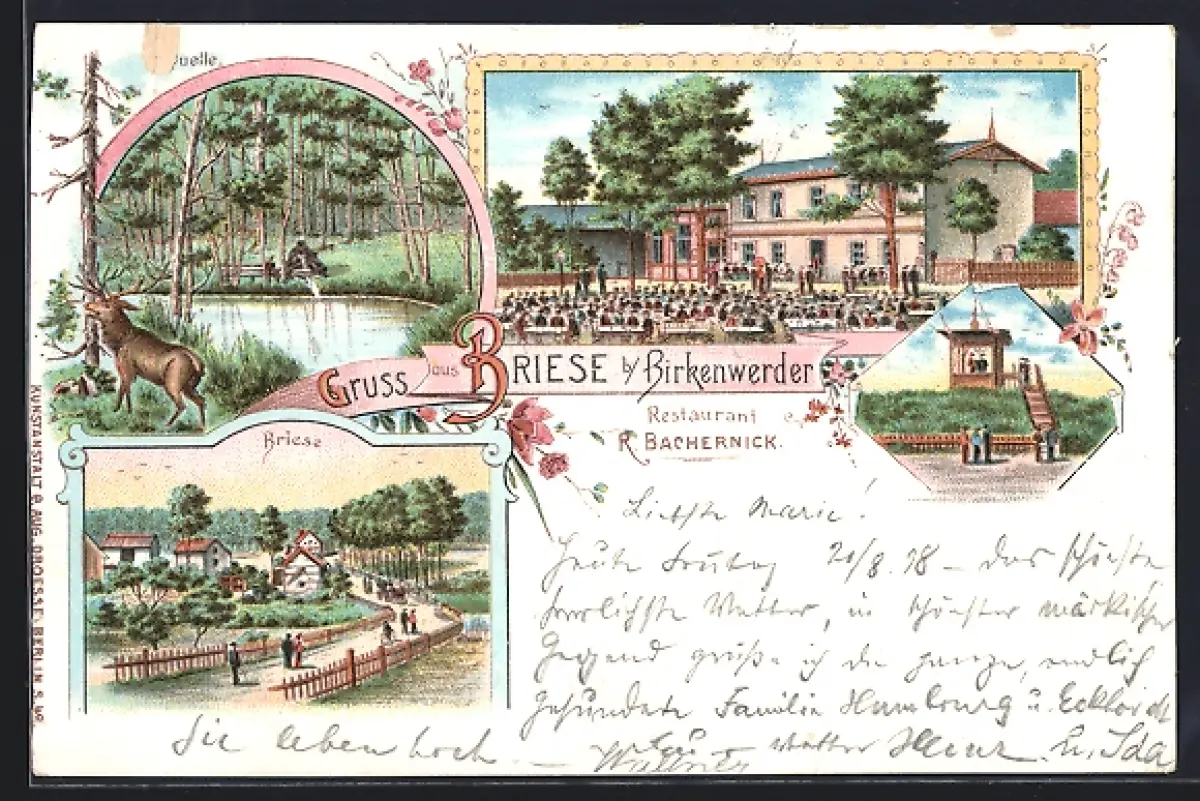 Quelle
Gruss aus BRIESE b/ Birkenwerder
Restaurant
R. BACHERNICK.
Briese
KUNSTANSTALT
BERLIN S. 42
Liebste Marie!
Heute 20/8. 98 – das schönste
herrlichste Wetter, in schönster märkischer
Gegend grüße ich die ganze, endlich
gesundete Familie Hamburg u.
Sie leben hoch.
Heinr. u. Ida